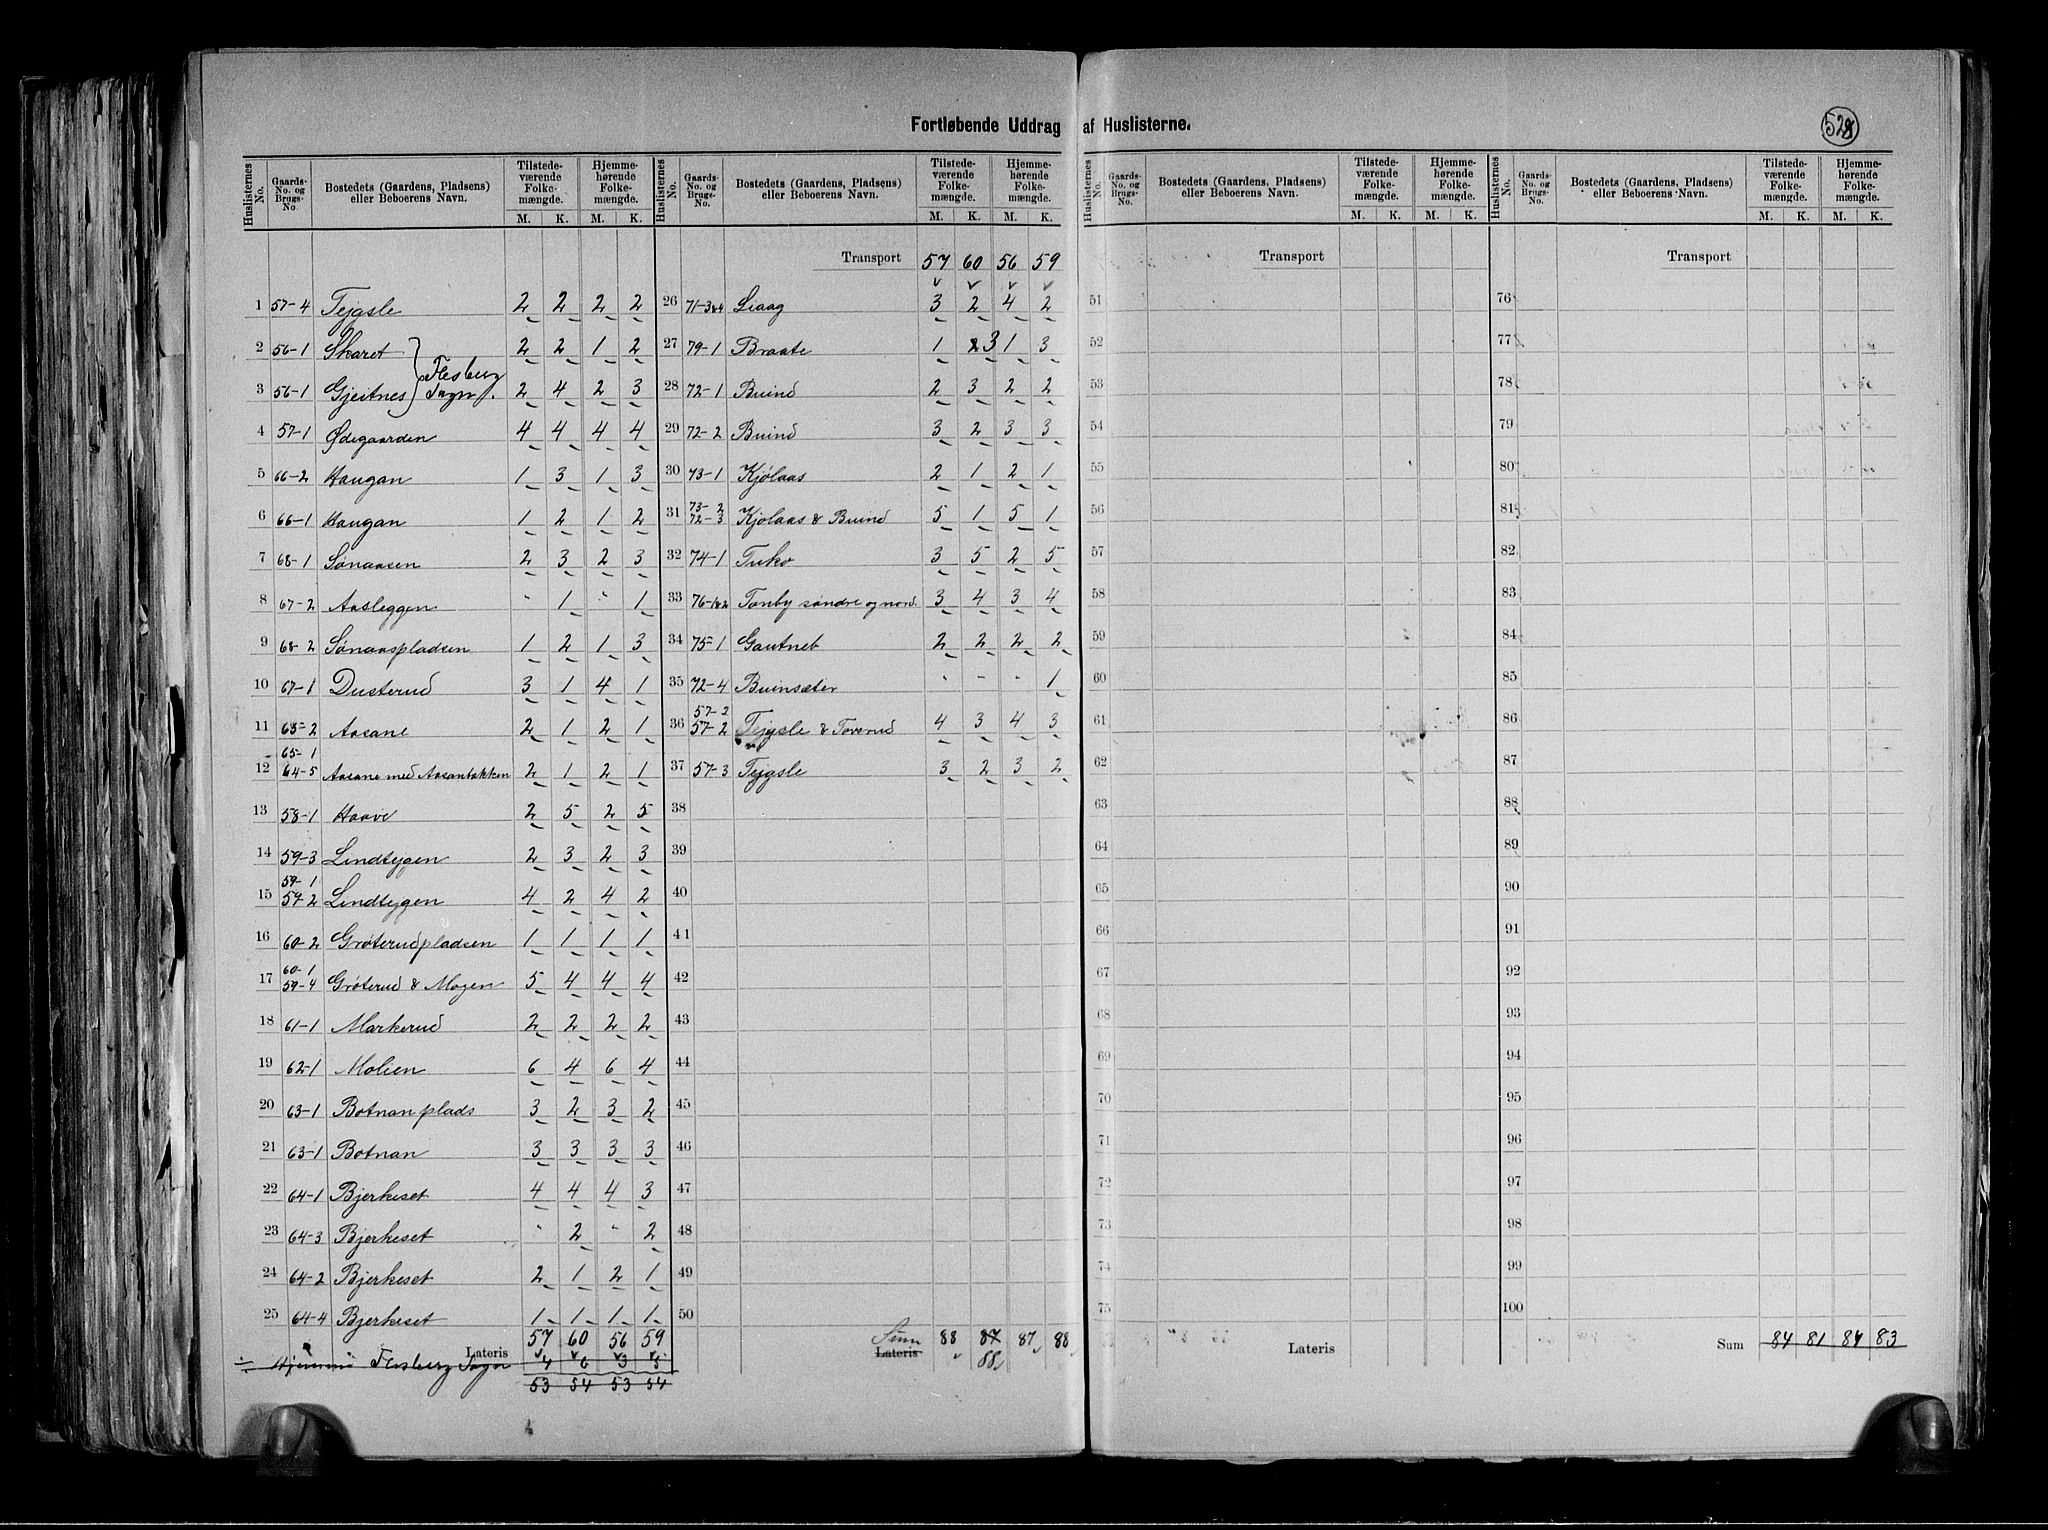 Fortløbende Uddrag af Huslisterne.
528
Huslisternes No. Gaards-No. og Brugs-No. Bostedets (Gaardens, Pladsens) eller Beboerens Navn. Tilstedeværende Folkemængde. M. K. Hjemmehørende Folkemængde. M. K.
1 57-4 Tejgsle 2 2 2 2
2 56-1 Skaret 2 2 1 2
Flesberg Sogn.
3 56-1 Gjeitnes 2 4 2 3
4 57-1 Ødegaarden 4 4 4 4
5 66-2 Haugan 1 3 1 3
6 66-1 Haugan 1 2 1 2
7 68-1 Sønaasen 2 3 2 3
8 67-2 Aasleggen " 1 " 1
9 68-2 Sønaaspladsen 1 2 1 3
10 67-1 Dusterud 3 1 4 1
11 65-2 Aasane 2 1 2 1
65-1
12 64-5 Aasane med Aasanbakken 2 1 2 1
13 58-1 Haave 2 5 2 5
14 59-3 Lindtejgen 2 3 2 3
59-1
15 59-2 Lindtejgen 4 2 4 2
16 60-2 Grøterudpladsen 1 1 1 1
60-1
17 59-4 Grøterud & Mogen 5 4 4 4
18 61-1 Markerud 2 2 2 2
19 62-1 Molien 6 4 6 4
20 63-1 Botnan plads 3 2 3 2
21 63-1 Botnan 3 3 3 3
22 64-1 Bjerkeset 4 4 4 3
23 64-3 Bjerkeset " 2 " 2
24 64-2 Bjerkeset 2 1 2 1
25 64-4 Bjerkeset 1 1 1 1
Lateris 57 60 56 59
Flesberg Sogn 4 6 3 5
53 54 53 54
Huslisternes No. Gaards-No. og Brugs-No. Bostedets (Gaardens, Pladsens) eller Beboerens Navn. Tilstedeværende Folkemængde. M. K. Hjemmehørende Folkemængde. M. K.
Transport 57 60 56 59
26 71-3&4 Liaag 3 2 4 2
27 79-1 Braate 1 2 3 1 3
28 72-1 Buind 2 3 2 2
29 72-2 Buind 3 2 3 3
30 73-1 Kjølaas 2 1 2 1
73-2
31 72-3 Kjølaas & Buind 5 1 5 1
32 74-1 Tuko 3 5 2 5
33 76-1&2 Tonby søndre og nord. 3 4 3 4
34 75-1 Gautnet 2 2 2 2
35 72-4 Buinsæter " " " 1
57-2
36 57-2 Tejgsle & Torsrud 4 3 4 3
37 57-3 Tejgsle 3 2 3 2
38
39
40
41
42
43
44
45
46
47
48
49
50
Sum Lateris 88 87 87 88
88
Huslisternes No. Gaards-No. og Brugs-No. Bostedets (Gaardens, Pladsens) eller Beboerens Navn. Tilstedeværende Folkemængde. M. K. Hjemmehørende Folkemængde. M. K.
Transport
51
52
53
54
55
56
57
58
59
60
61
62
63
64
65
66
67
68
69
70
71
72
73
74
75
Lateris
Huslisternes No. Gaards-No. og Brugs-No. Bostedets (Gaardens, Pladsens) eller Beboerens Navn. Tilstedeværende Folkemængde. M. K. Hjemmehørende Folkemængde. M. K.
Transport
76
77
78
79
80
81
82
83
84
85
86
87
88
89
90
91
92
93
94
95
96
97
98
99
100
Sum 84 81 84 83